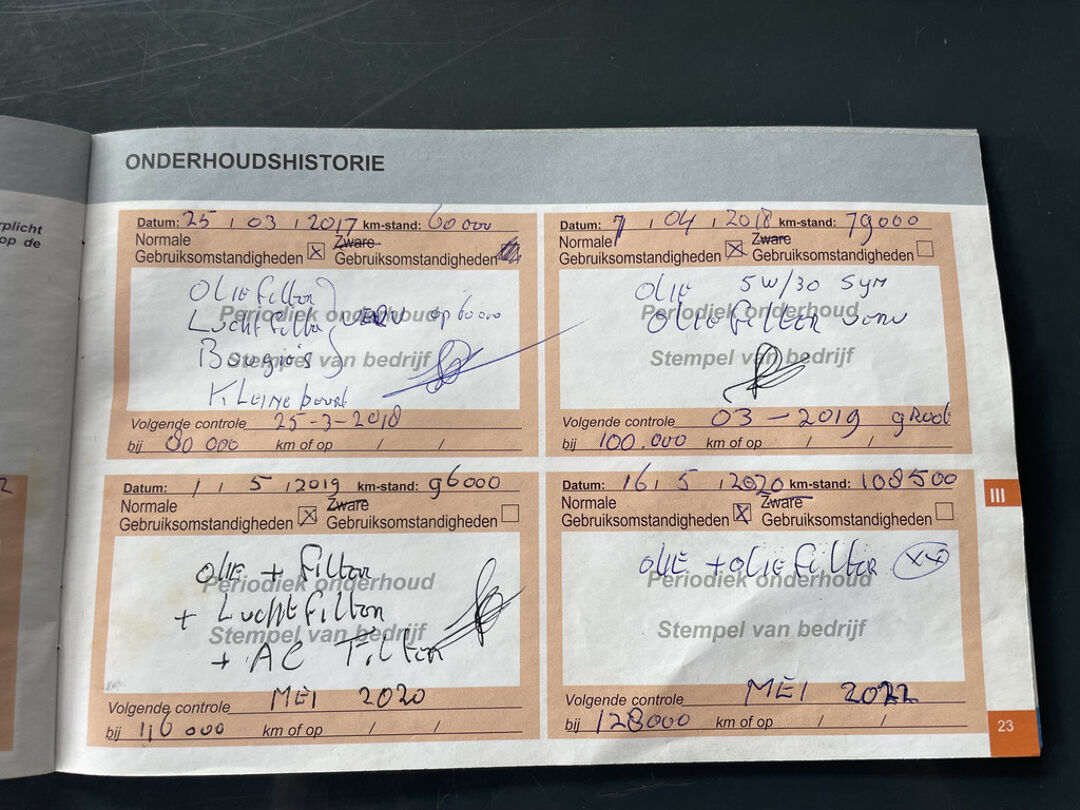 rplicht
op de
ONDERHOUDSHISTORIE
Datum: 25 / 03 / 2017 km-stand: 60 000
Normale Zware
Gebruiksomstandigheden Gebruiksomstandigheden
OLIEfilter
Luchtfilter VERV op 60000
Bougie's
Kleine beurt
Periodiek onderhoud
Stempel van bedrijf
Volgende controle 25-3-2018
bij 80 000 km of op / /
Datum: 7 / 04 / 2018 km-stand: 79000
Normale Zware
Gebruiksomstandigheden Gebruiksomstandigheden
OLIE 5W/30 Syn
OLIEfilter verv
Periodiek onderhoud
Stempel van bedrijf
Volgende controle 03 - 2019 gRoot
bij 100.000 km of op / /
Datum: 1 / 5 / 2019 km-stand: 96000
Normale Zware
Gebruiksomstandigheden Gebruiksomstandigheden
OLIE + filter
+ Luchtfilter
+ AC Filter
Periodiek onderhoud
Stempel van bedrijf
Volgende controle MEI 2020
bij 116 000 km of op / /
Datum: 16 / 5 / 2020 km-stand: 108500
Normale Zware
Gebruiksomstandigheden Gebruiksomstandigheden
OLIE + OLIEfilter xx
Periodiek onderhoud
Stempel van bedrijf
Volgende controle MEI 2022
bij 128000 km of op / /
III
23